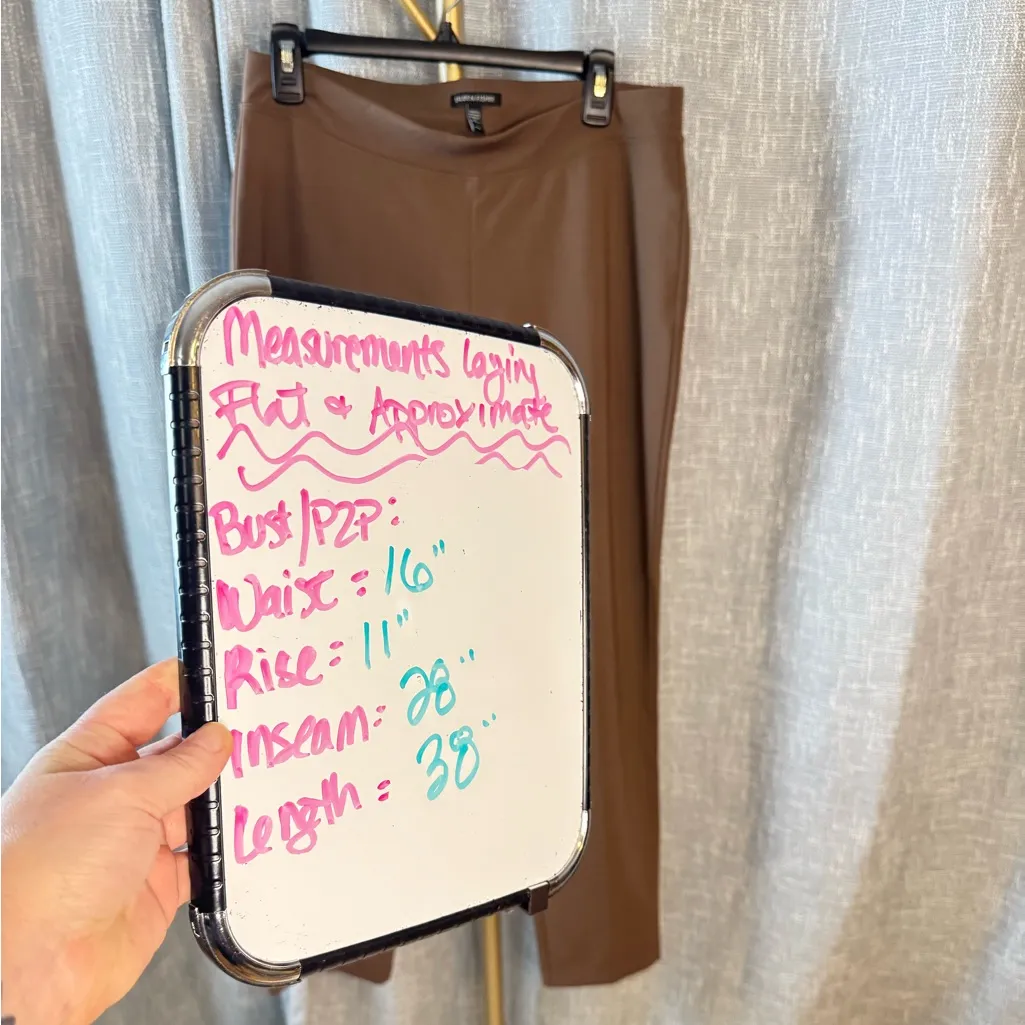 Measurements laying
Flat & Approximate
Bust/P2P:
Waist: 16"
Rise: 11"
Inseam: 28"
Length: 38"